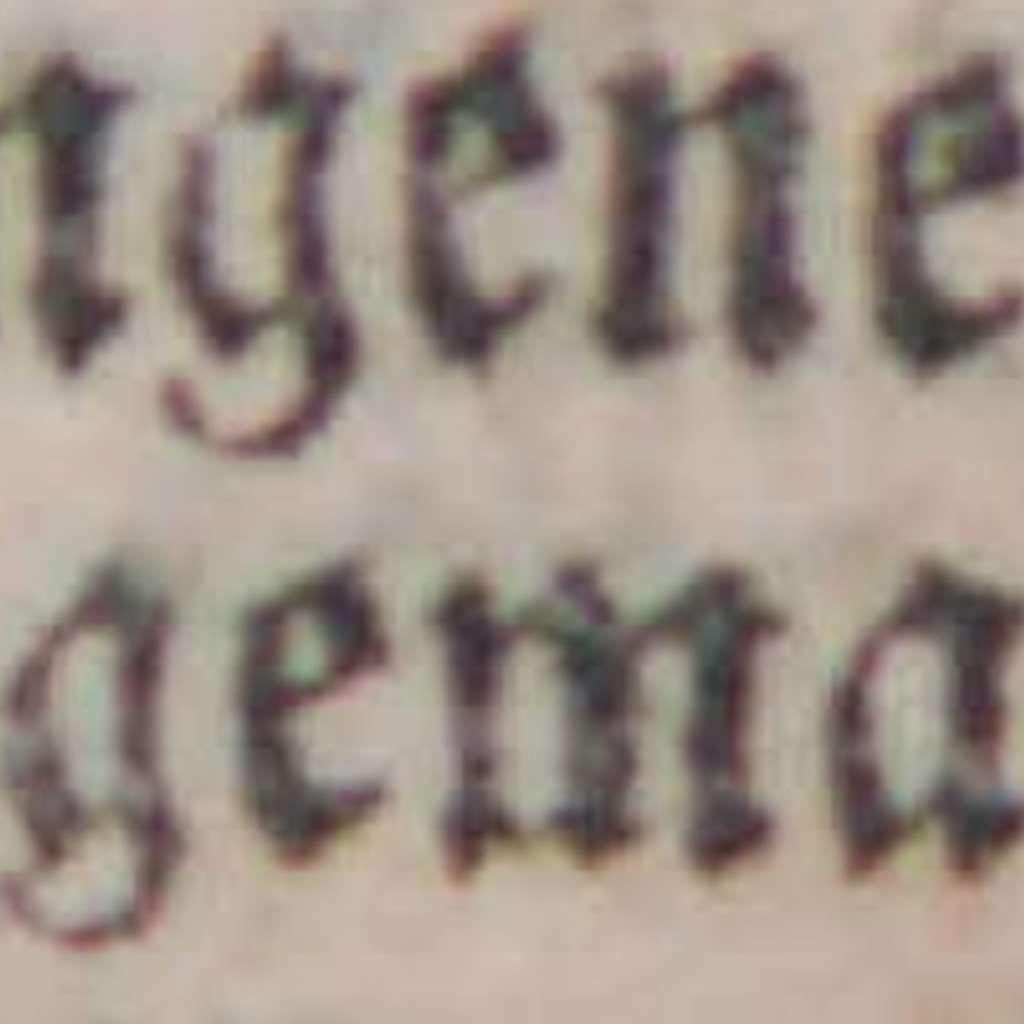 ngene
gema